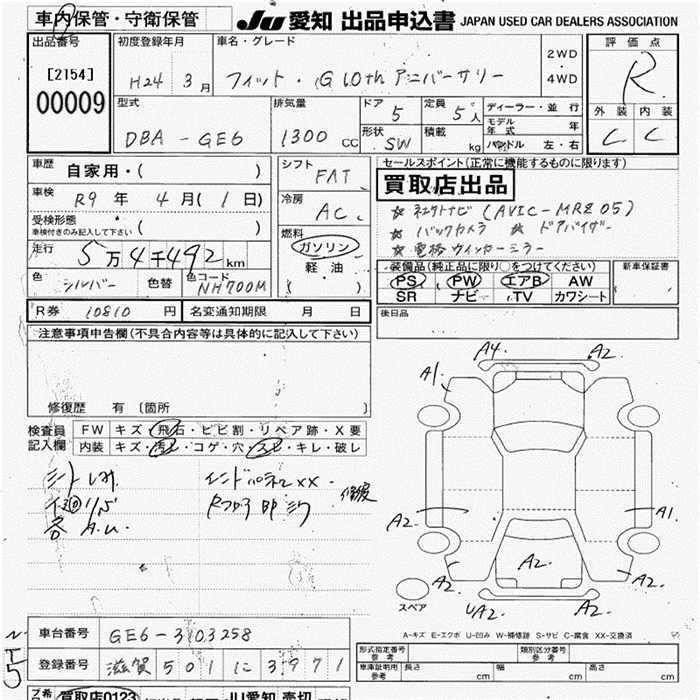 車内保管・守衛保管
JU 愛知 出品申込書 JAPAN USED CAR DEALERS ASSOCIATION
出品番号
[2154]
00009
初度登録年月
H24 3月
車名・グレード
フィット・G 10th アニバーサリー
2WD
・
4WD
評価点
R
外装 内装
C C
型式
DBA - GE6
排気量
1300 CC
ドア
5
形状
SW
定員
5人
積載
kg
ディーラー・並行
モデル年式 年
ハンドル 左・右
車歴 自家用・( )
車検 R9年 4月(1日)
受検形態
車検付きのみ記入して下さい ( )
走行 5万4千492km
色 シルバー 色替
色コード NH700M
シフト
FAT
冷房
AC
燃料
ガソリン
・
軽油
( )
セールスポイント(正常に機能するものに限ります)
買取店出品
☆ 社外ナビ (AVIC-MRZ05)
☆ バックカメラ ☆ ドアバイザー
☆ 電格ウィンカーミラー
装備品(純正品に限り○をつけてください)
PS PW エアB AW
SR ナビ TV カワシート
新車保証書
後日品
R券 10810 円
名変通知期限 月 日
注意事項申告欄(不具合内容等は具体的に記入して下さい)
修復歴 有(箇所
検査員
記入欄
FW キズ・飛石・ヒビ割・リペア跡・X要
内装 キズ・汚れ・コゲ・穴・スレ・キレ・破レ
シート しみ
A.U.
インドパネル XX
修復
A4 A2
A1
A2 A1
A2
A2 A2
UA2
スペア
A-キズ E-エクボ U-凹み W-補修跡 S-サビ C-腐食 XX-交換済
車台番号 GE6-3103258
登録番号 滋賀 501 に 3971
形式指定番号
参考
類別区分番号
参考
車庫証明用
参考
長さ cm 幅 cm 高さ cm
買取店0123
JU愛知 売切